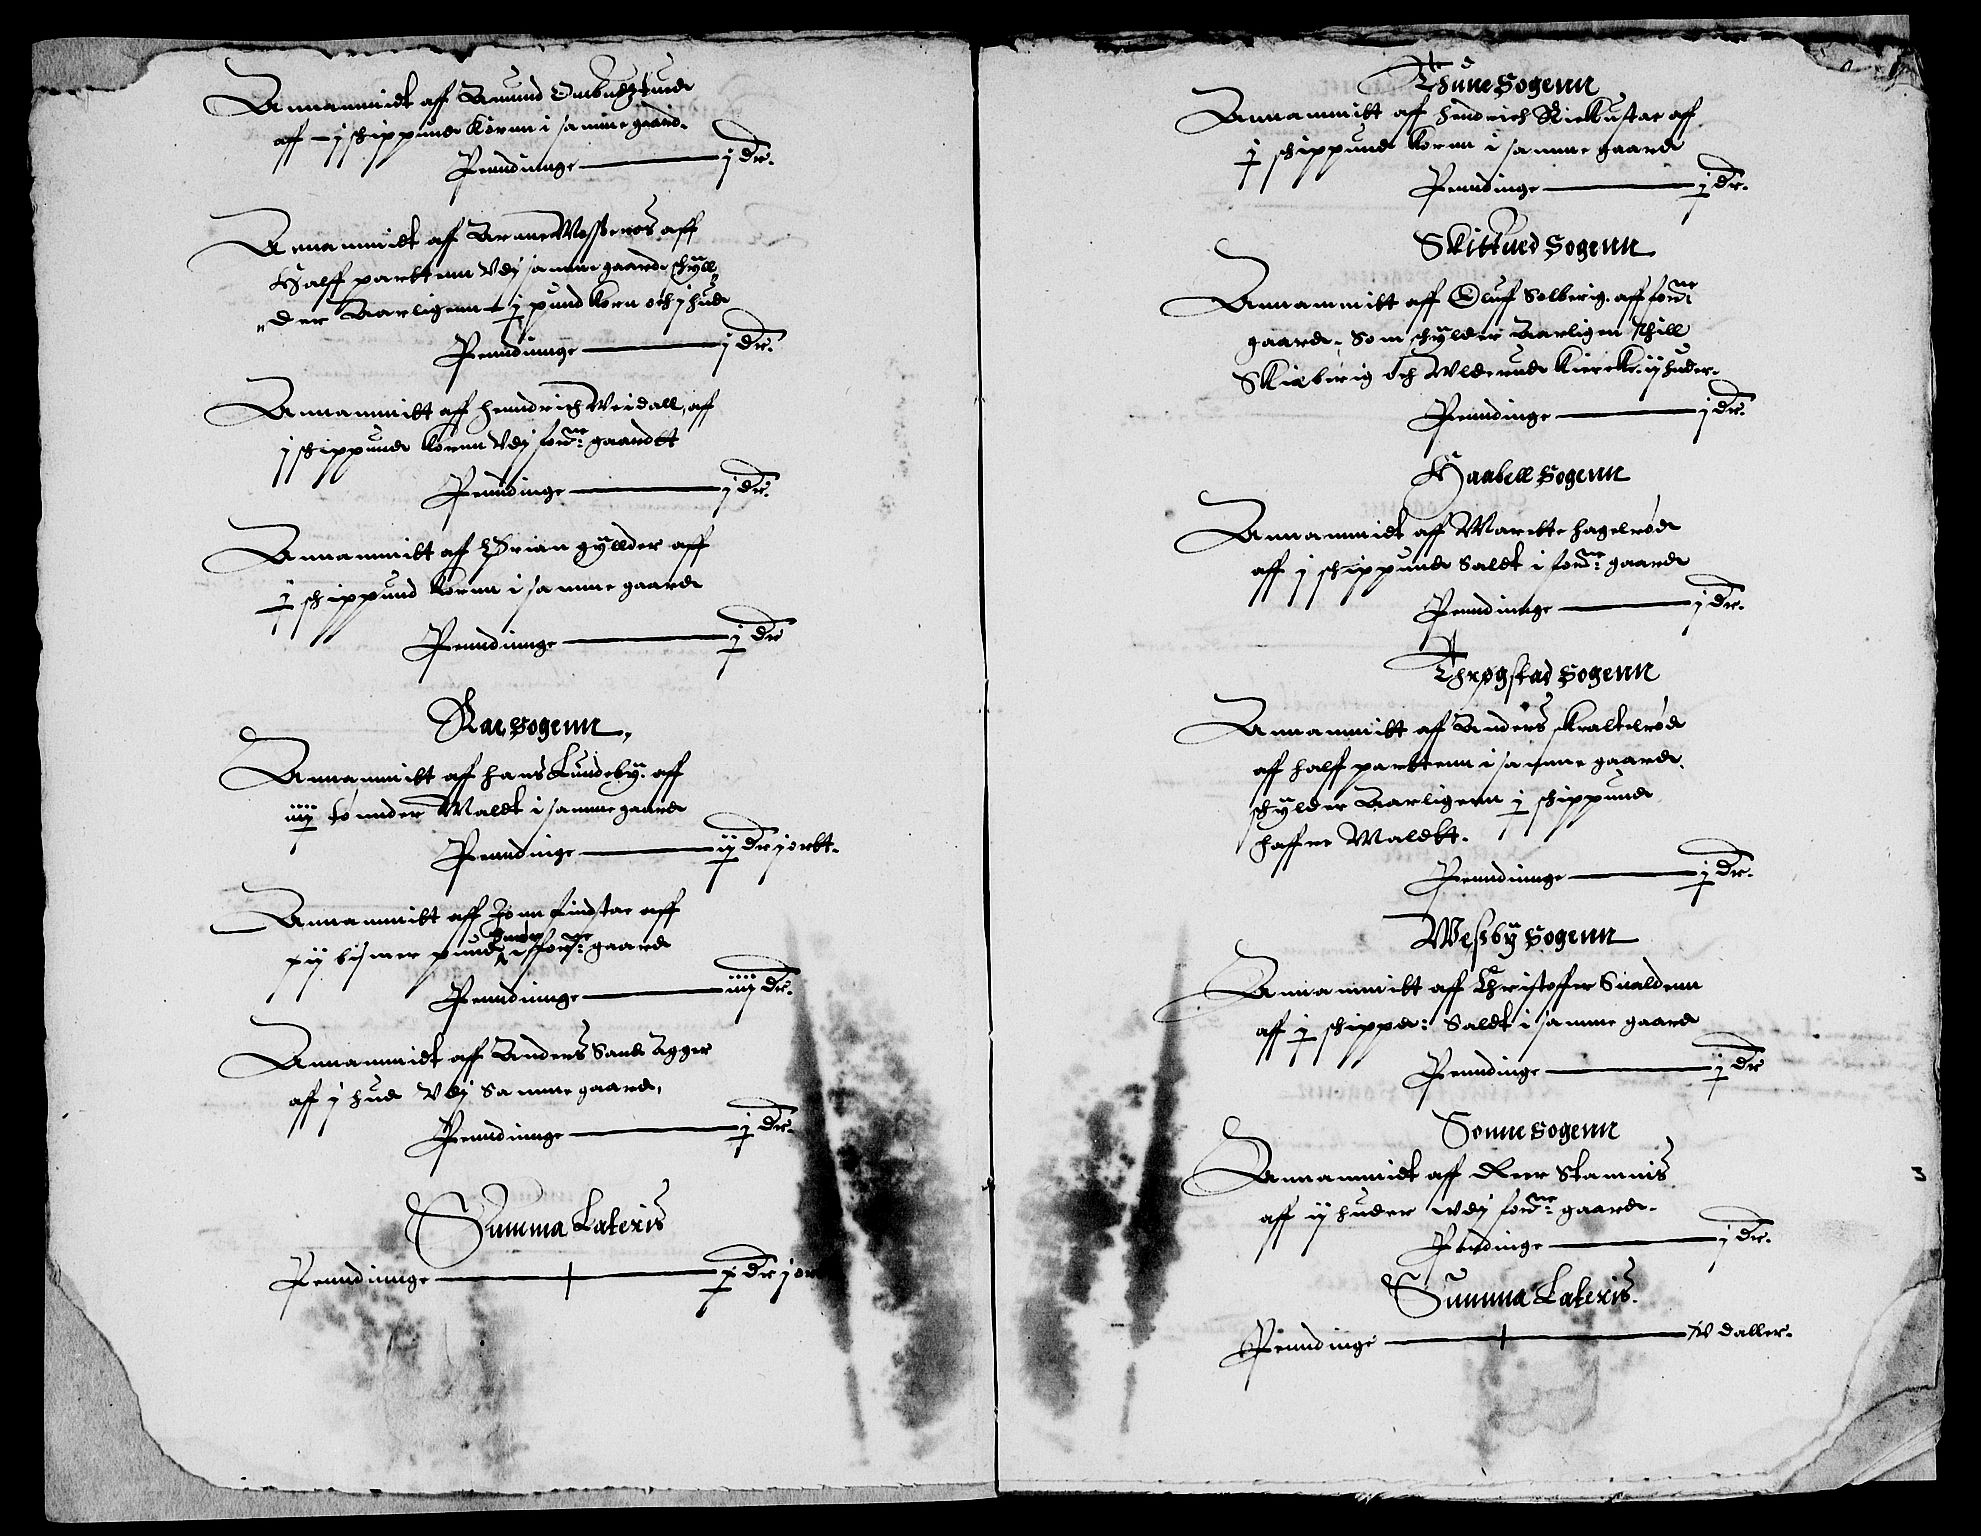 Annammidt aff Amund Ombudztued
aff – j schippund Kornn i samme gaard.
Penndinnge — j dr.
Annammidt aff Arne Wesseros aff
Halff parttenn vdj samme gaard, schyll
der Aarligenn – j pund korn och j hud
Penndinnge — j dr.
Annammitt aff Henndrich Weidall, aff
j schippund Kornn vdj forne: gaardtt
Penndinge — j dr.
Annammitt aff Ørian gyllder aff
j schippund Kornn i samme gaard
Penndinnge — j dr
Raesogenn,
Annammitt aff Hans Lundeby. aff
iiij tønnder Maldt i samme gaard
Penndinge — ij dr j ortt.
Annammitt aff Jonn Findstae aff
xij bismer pund smør i forne: gaard
Penndinnge — iiij dr.
Annammidt aff Anders Sand Agger
aff j hud vdj Samme gaard,
Penndinnge — j dr.
Summa Lateris
Penndinnge — x dr j
Thunesogenn
Annammitt aff Hendrich Rickustae aff
j schippund Kornn i samme gaard
Penndinge — j dr.
Skittued Sogenn
Annammitt aff Oluff Solberig. aff forne
gaard. Som schylder Aarligen thill
Skieberig och Wlderud Kiercke ij huder.
Penndinge — j dr.
Haabell Sogenn
Annammidt aff Maritte Hagelrød
aff j schippund Saldt i forne: gaard
Penndinnge — j dr.
Thrøgstad Sogenn
Annammitt aff Anders skraltelrød
aff halff parttenn i samme gaard.
schylder Aarligenn j schippund
haffre Maldtt.
Penndinnge — j dr.
Wessby Sogenn
Annammitt aff Christoffer Sualdenn
aff j schippd: Saldt i samme gaard
Penndinge — ij dr
Sonnsogenn
Annammidt aff Reer Stamnis
aff ij huder wdj forne: gaard.
Pendinge — j dr.
Summa Lateris.
Penndinge — xv daller.
3